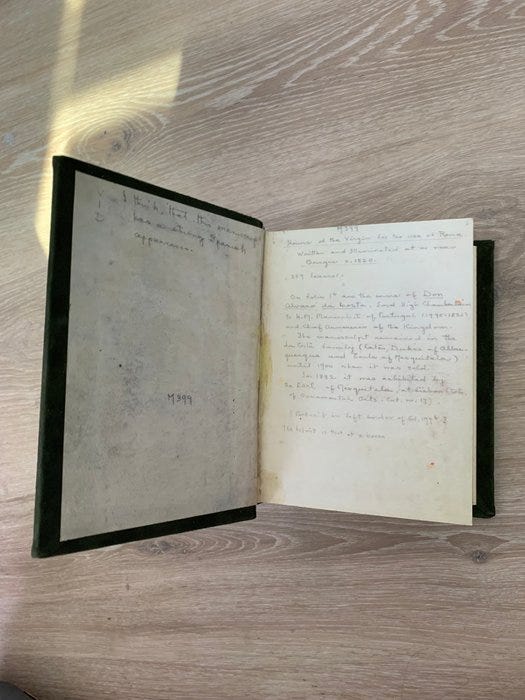 I think that this manuscript
has a strong Spanish
appearance.
M399
M399
Hours of the Virgin for the use of Rome
Written and Illuminated at or near
Bruges c. 1520.
leaves.
On folio 1 are the arms of Don
Alvaro da Costa, Lord High Chamberlain
to H.M. Manuel I of Portugal (1495-1521)
and Chief Armourer of the Kingdom.
The manuscript remained in the
da Costa family (later, Dukes of Albu-
querque and Earls of Mesquitela)
until 1900 when it was sold.
In 1882 it was exhibited by
the Earl of Mesquitela, at Lisbon
of Ornamental Arts, Cat. no.
Portrait in left border of fol.
The is that of a